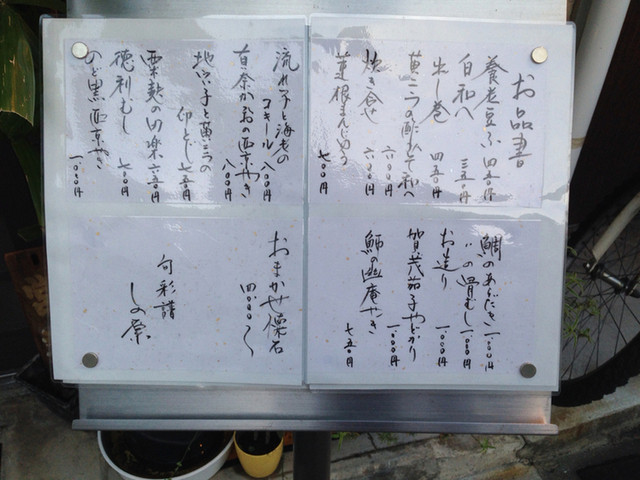 お品書
養老豆ふ 四五〇円
白和へ 三五〇円
出し巻 四五〇円
茸三つの酢みぞれ和へ 六〇〇円
炊き合せ 六〇〇円
蓮根まんじゅう 七〇〇円
流れ子と海老の
コキール 八〇〇円
真奈かつおの西京やき 八〇〇円
地穴子と茸三つの
卵とじ 七五〇円
粟麩の田楽 六五〇円
徳利むし 七〇〇円
のど黒西京やき 一、〇〇〇円
鯛のあらだき 一、〇〇〇円
〃の骨むし 一、〇〇〇円
お造り 一、〇〇〇円
賀茂茄子やどかり 一、〇〇〇円
鰤の幽庵やき 七五〇円
おまかせ懐石
四、〇〇〇〜
旬彩譜
しの原